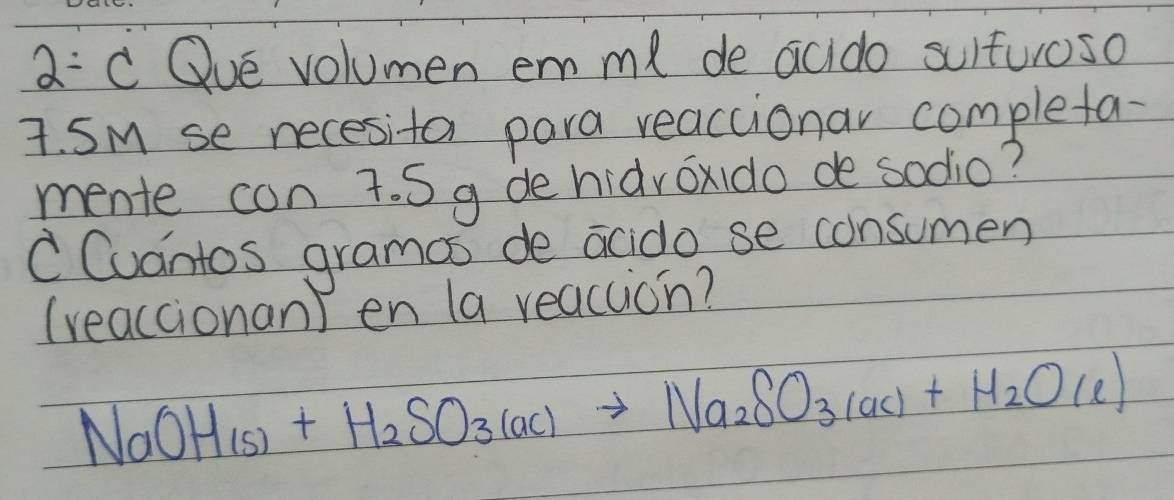 2- ¿Qué volumen em ml de ácido sulfuroso
7.5M se necesita para reaccionar completa-
mente con 7.5g de hidróxido de sodio?
¿Cuántos gramos de ácido se consumen
(reaccionan) en la reacción?
NaOH(s) + H₂SO₃(ac) → Na₂SO₃(ac) + H₂O(l)